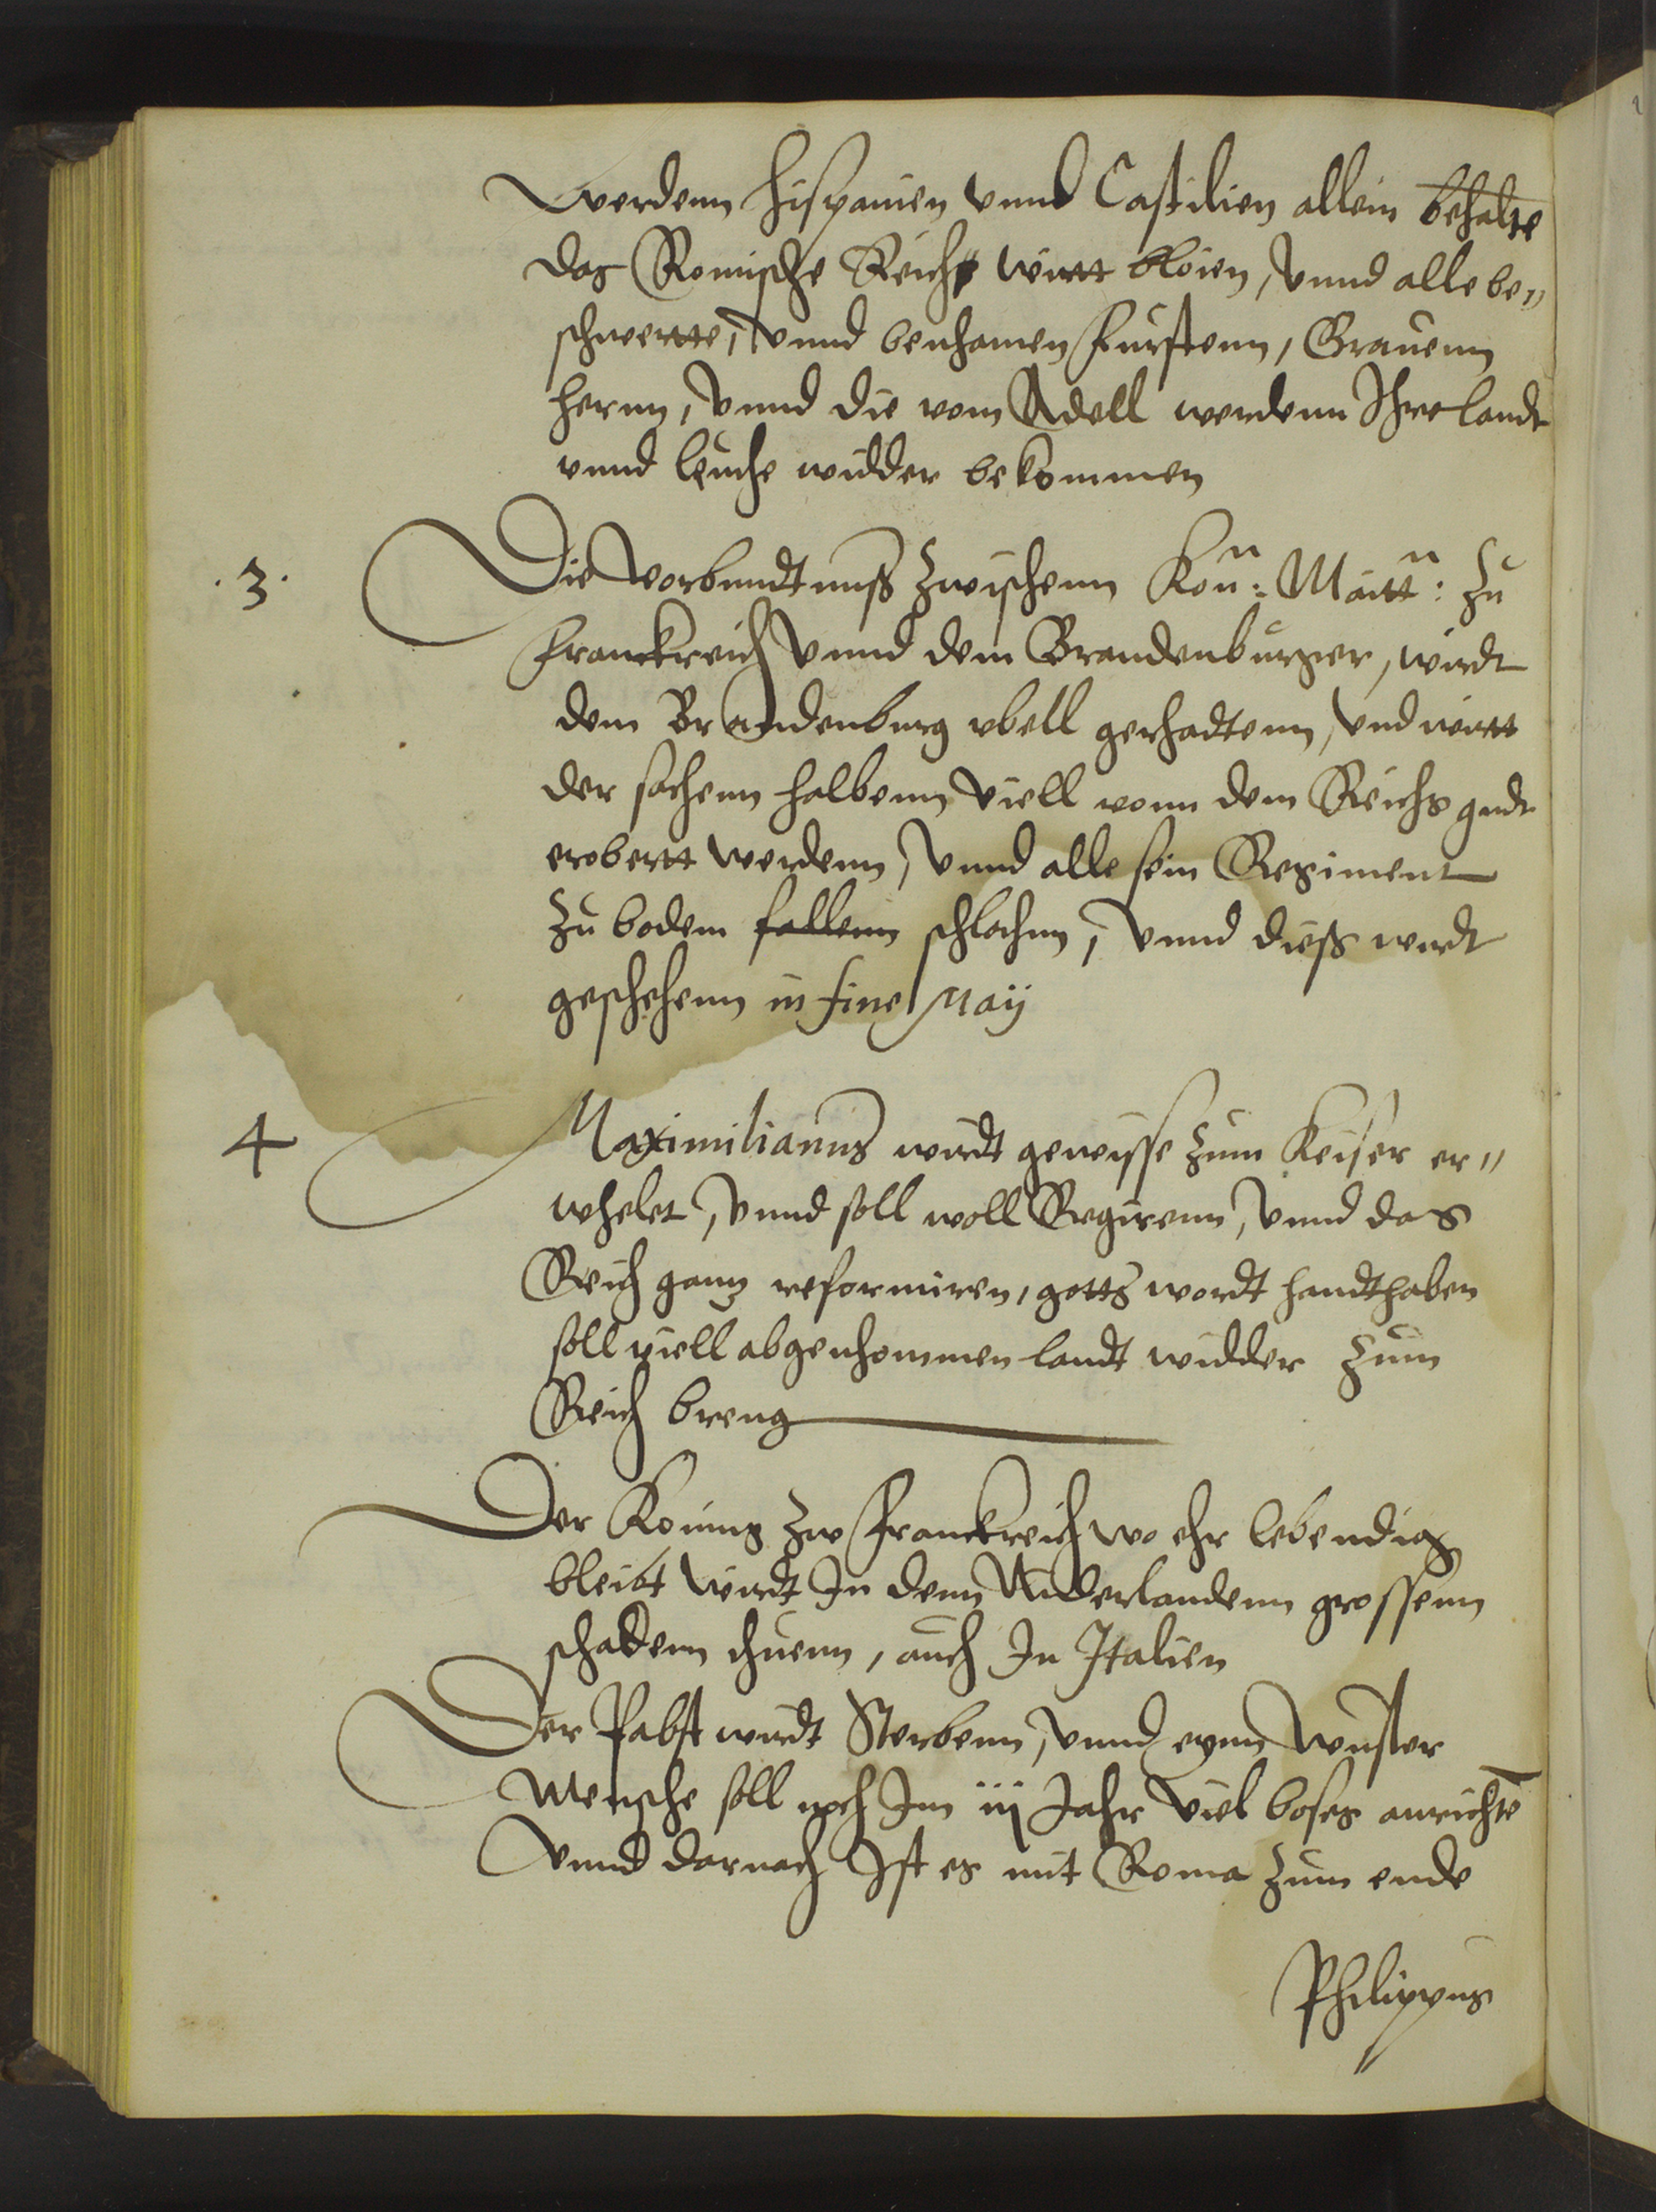 werdenn Hispanien vnnd Castilien allein behalte
das Romische Reichs wirtt bloien, vnnd alle be„
schwertte, vnnd benhamen Furstenn, Grauenn
Hernn, vnnd die vom Adell werdenn Ihre landt
vnnd leuthe widder bekommen
.3. Die vorbundtnuß zwischenn Kon: Maitt: zu
Franckreich vnnd dem Brandenburger, wirdt
dem Brandenburg vbell gerhadtenn, vnd wirtt
der sachenn halbenn viell vonn dem Reichs gudt
erobertt werdenn, vnnd alle sein Regiment
zu bodem fallenn schlahenn, vnnd dieß wirdt
geschehenn in fine Maij
4 Maximilianus wirdt gewisse zum Keiser er„
whelet, vnnd soll woll Regirenn, vnnd das
Reich gantz reformiren, gotts wordt handthaben
soll viell abgenhommen landt widder zum
Reich breng
Der Koning zw Franckreich wo ehr lebendig
bleibt wirdt In denn Niderlandenn grossenn
schadenn thuenn, auch In Italien
Der Pabst wirdt Sterbenn, vnnd eynn wuster
Mensche soll noch Im iij Jahr viel boses anrichte
Vnnd darnach Ist es mit Roma zum ende
Philippus